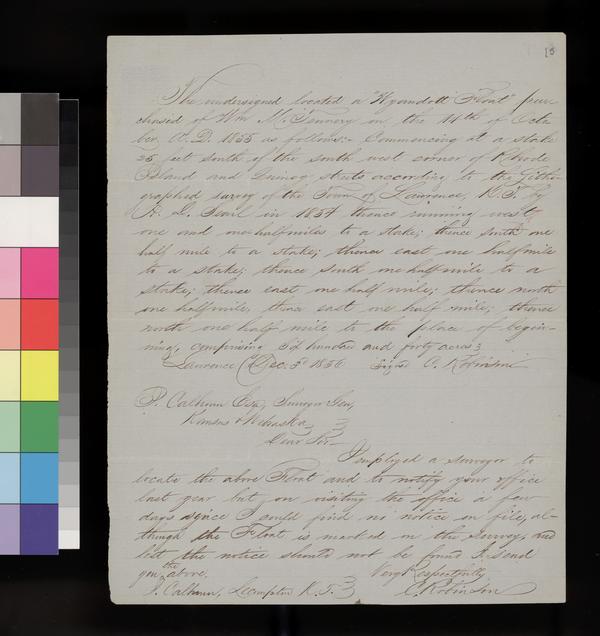 15
The undersigned located a "Wyandott Float" pur-
chased of Wm M. Tennery on the 14th of Octo-
ber, A.D. 1855 as follows:- Commencing at a stake
35 feet south of the south west corner of Rhode
Island and streets according to the lithe
graphed survey of the Town of Lawrence, K.T. by
A. D. Searl in 1854 thence running west
one and one-half miles to a stake; thence south one
half mile to a stake; thence east one half mile
to a stake; thence south one half mile to a
stake; thence east one half mile; thence north
one half mile, thence east one half mile; thence
north one half mile to the place of begin-
ning, comprising six hundred and forty acres;
Lawrence Dec. 3d 1856 Signed C. Robinson

Calhoun Esq, Surveyor Gen,
Kansas & Nebraska
Dear Sir-
I employed a surveyor to
locate the above Float and to notify your office
last year but, on visiting the office a few
days since I could find no notice on file, al-
though the Float is marked on the survey, and
lest the notice should not be found I send
you the above. Very Respectfully
J. Calhoun, Lecompton K.T. C. Robinson